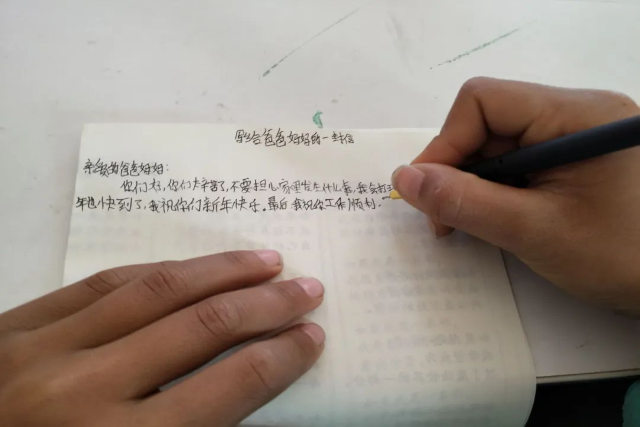 写给爸爸妈妈的一封信
亲爱的爸爸妈妈:
你们好,你们大辛苦了,不要担心家里发生什么事,我会打
年也快到了,我祝你们新年快乐。最后我祝你工作顺利。